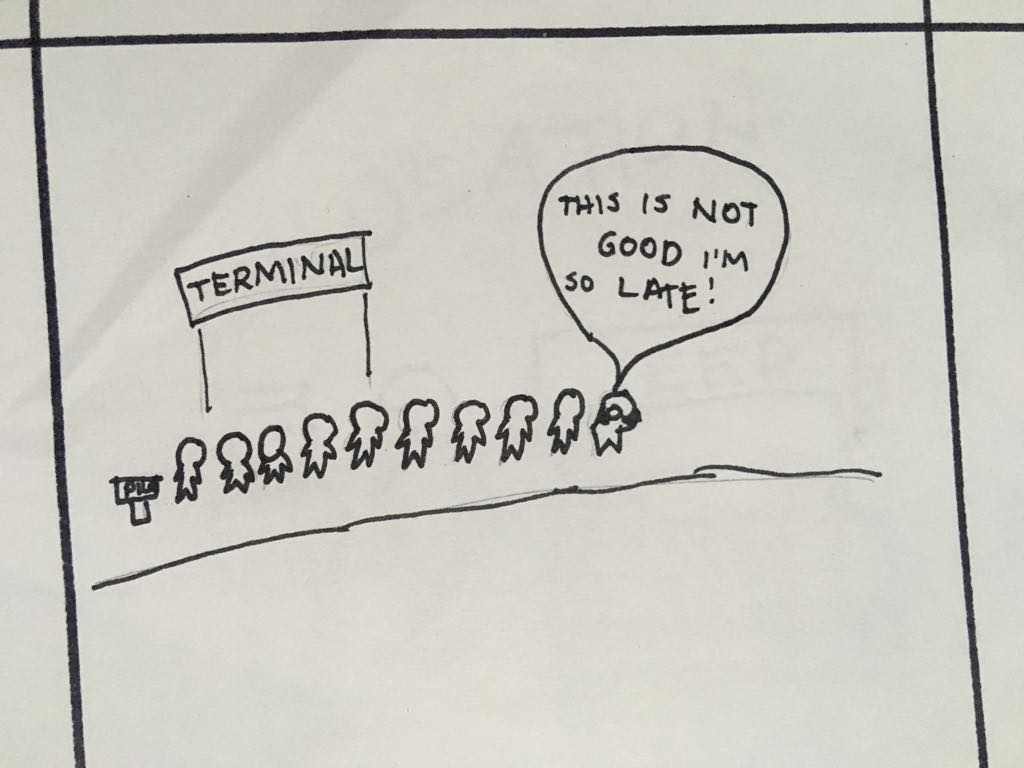 TERMINAL
THIS IS NOT
GOOD I'M
SO LATE!